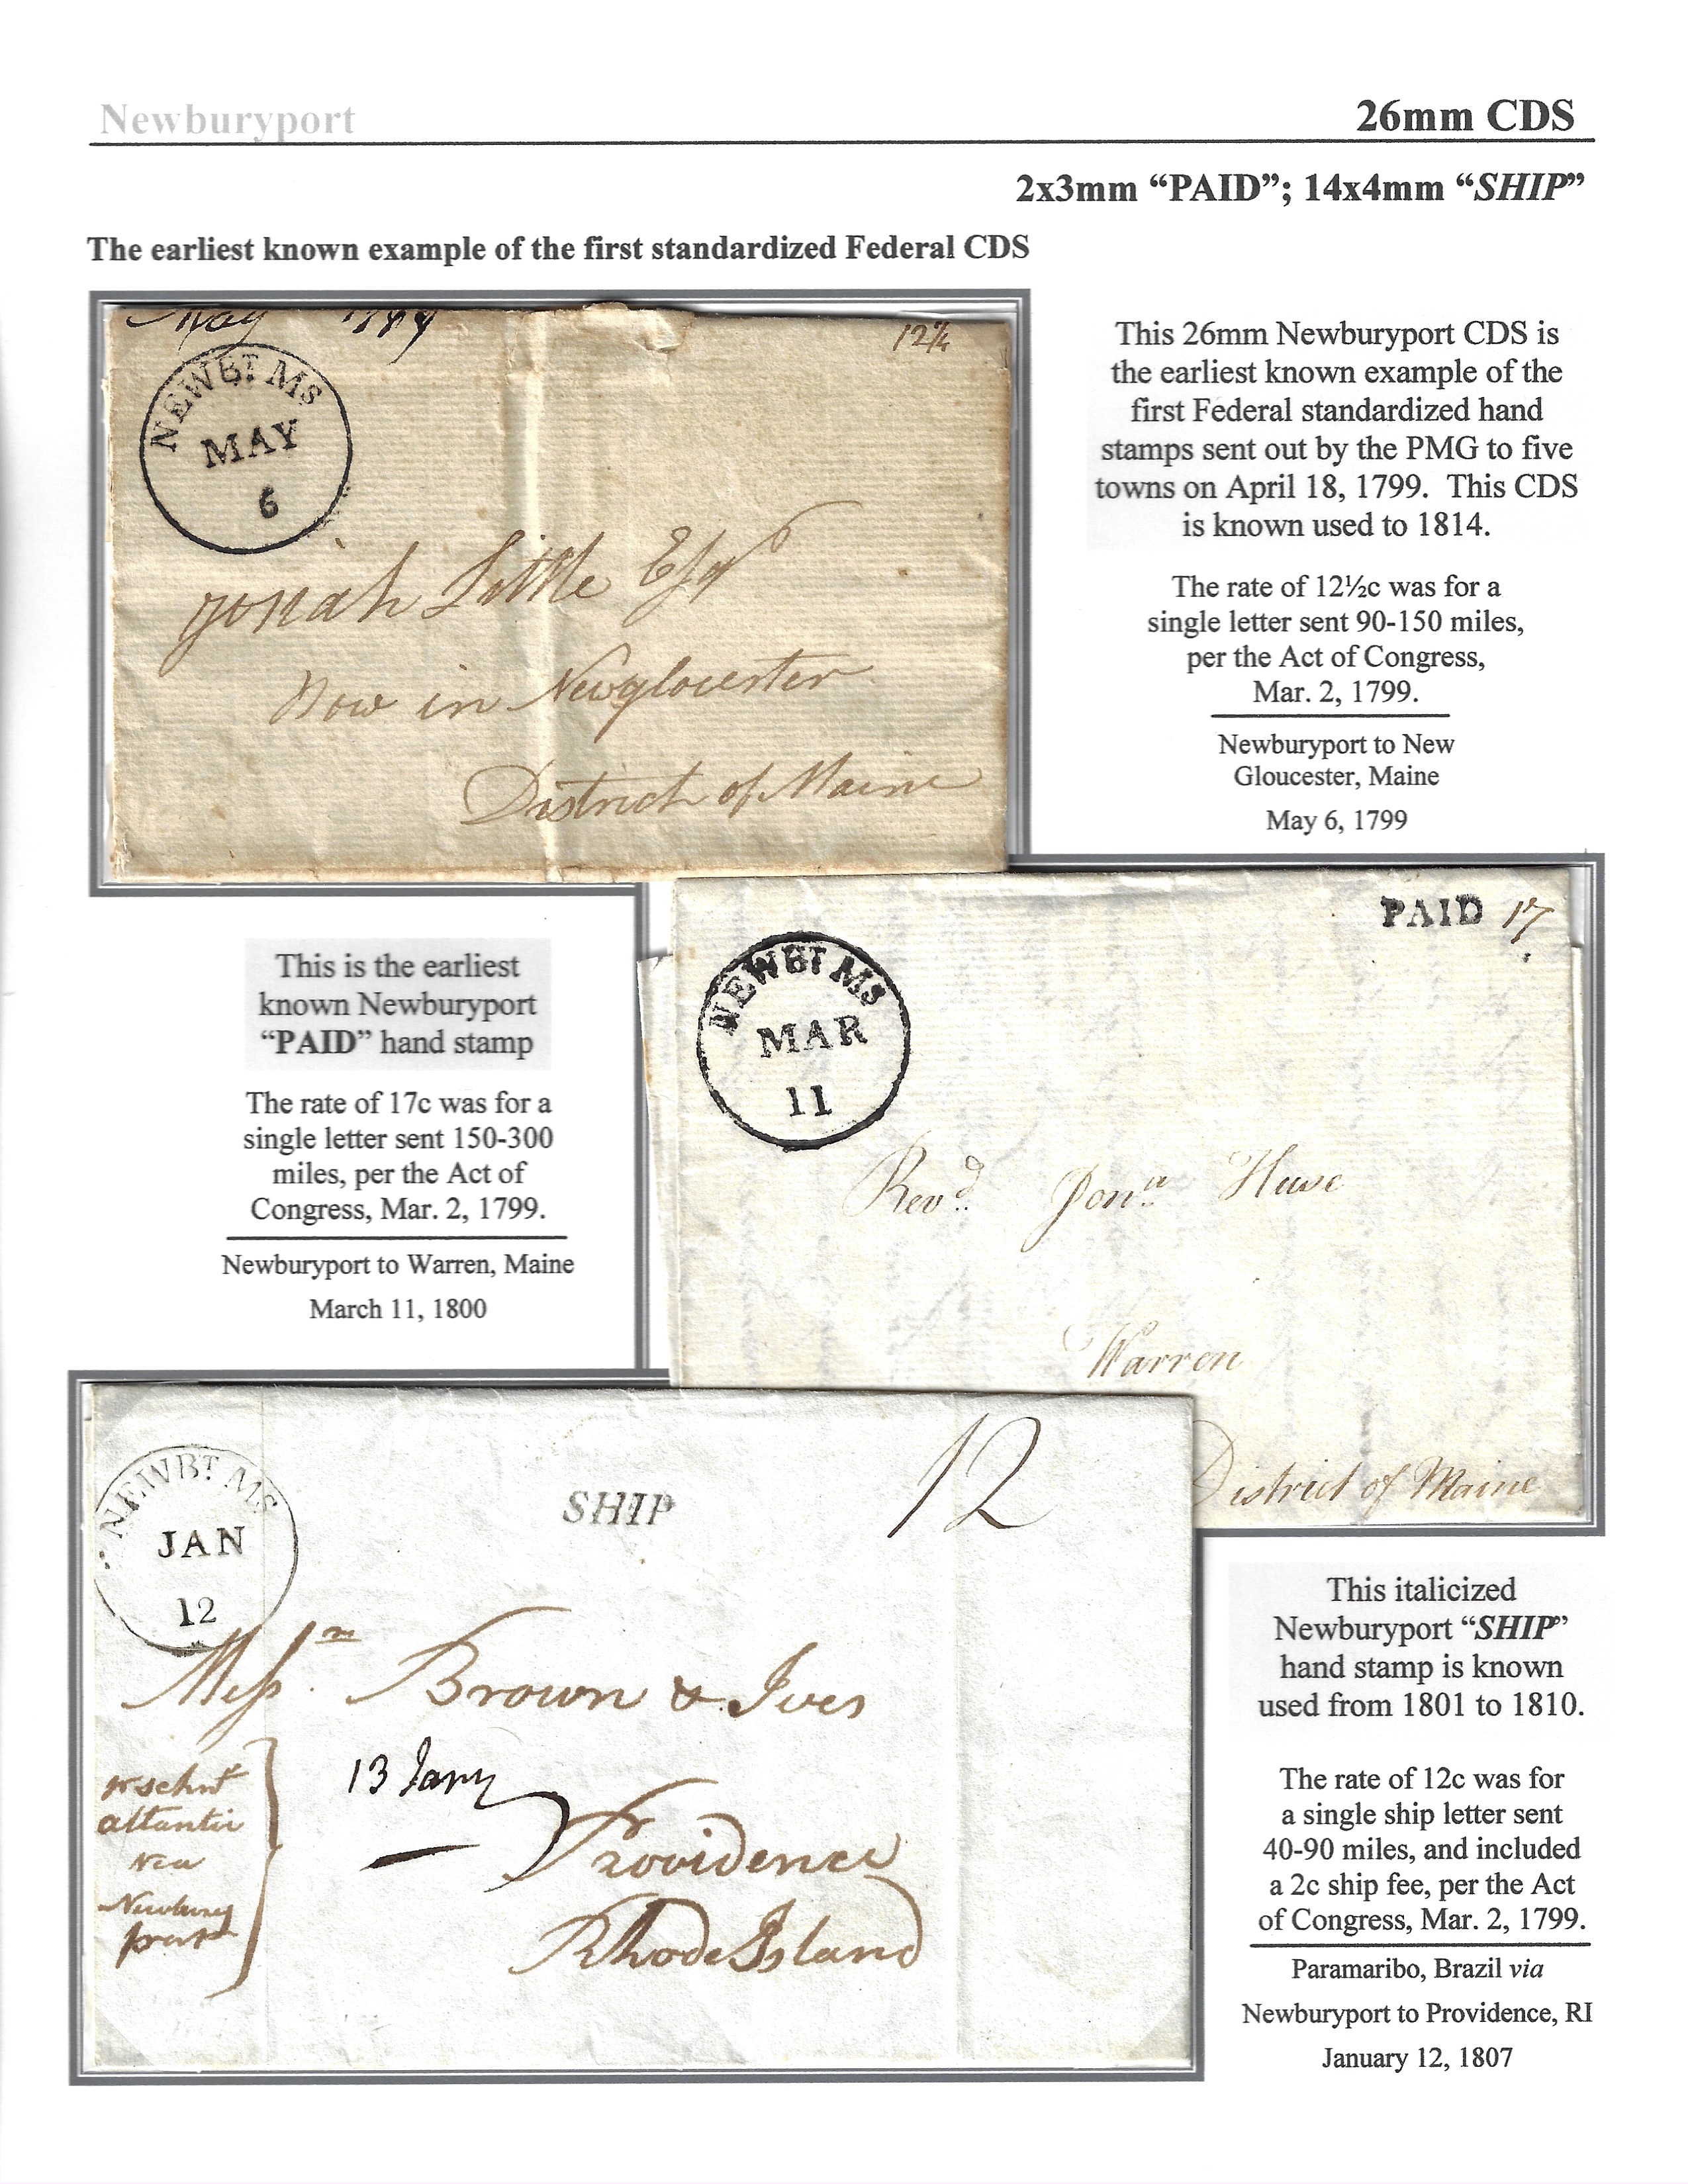 Newburyport
26mm CDS
2x3mm “PAID”; 14x4mm “SHIP”
The earliest known example of the first standardized Federal CDS
May 1799
12½
NEWBT MS
MAY
6
Josiah Little Esqr
Now in Newglocester
District of Maine
This 26mm Newburyport CDS is
the earliest known example of the
first Federal standardized hand
stamps sent out by the PMG to five
towns on April 18, 1799. This CDS
is known used to 1814.
The rate of 12½c was for a
single letter sent 90-150 miles,
per the Act of Congress,
Mar. 2, 1799.
Newburyport to New
Gloucester, Maine
May 6, 1799
This is the earliest
known Newburyport
“PAID” hand stamp
The rate of 17c was for a
single letter sent 150-300
miles, per the Act of
Congress, Mar. 2, 1799.
Newburyport to Warren, Maine
March 11, 1800
PAID 17
NEWBT MS
MAR
11
Revd. Jona. Huse
Warren
District of Maine
NEWBT MS
JAN
12
SHIP
12
Messrs. Brown & Ives
13 Jany
Providence
Rhode Island
pr schnr
atlantic
via
Newbury
port
This italicized
Newburyport “SHIP”
hand stamp is known
used from 1801 to 1810.
The rate of 12c was for
a single ship letter sent
40-90 miles, and included
a 2c ship fee, per the Act
of Congress, Mar. 2, 1799.
Paramaribo, Brazil via
Newburyport to Providence, RI
January 12, 1807